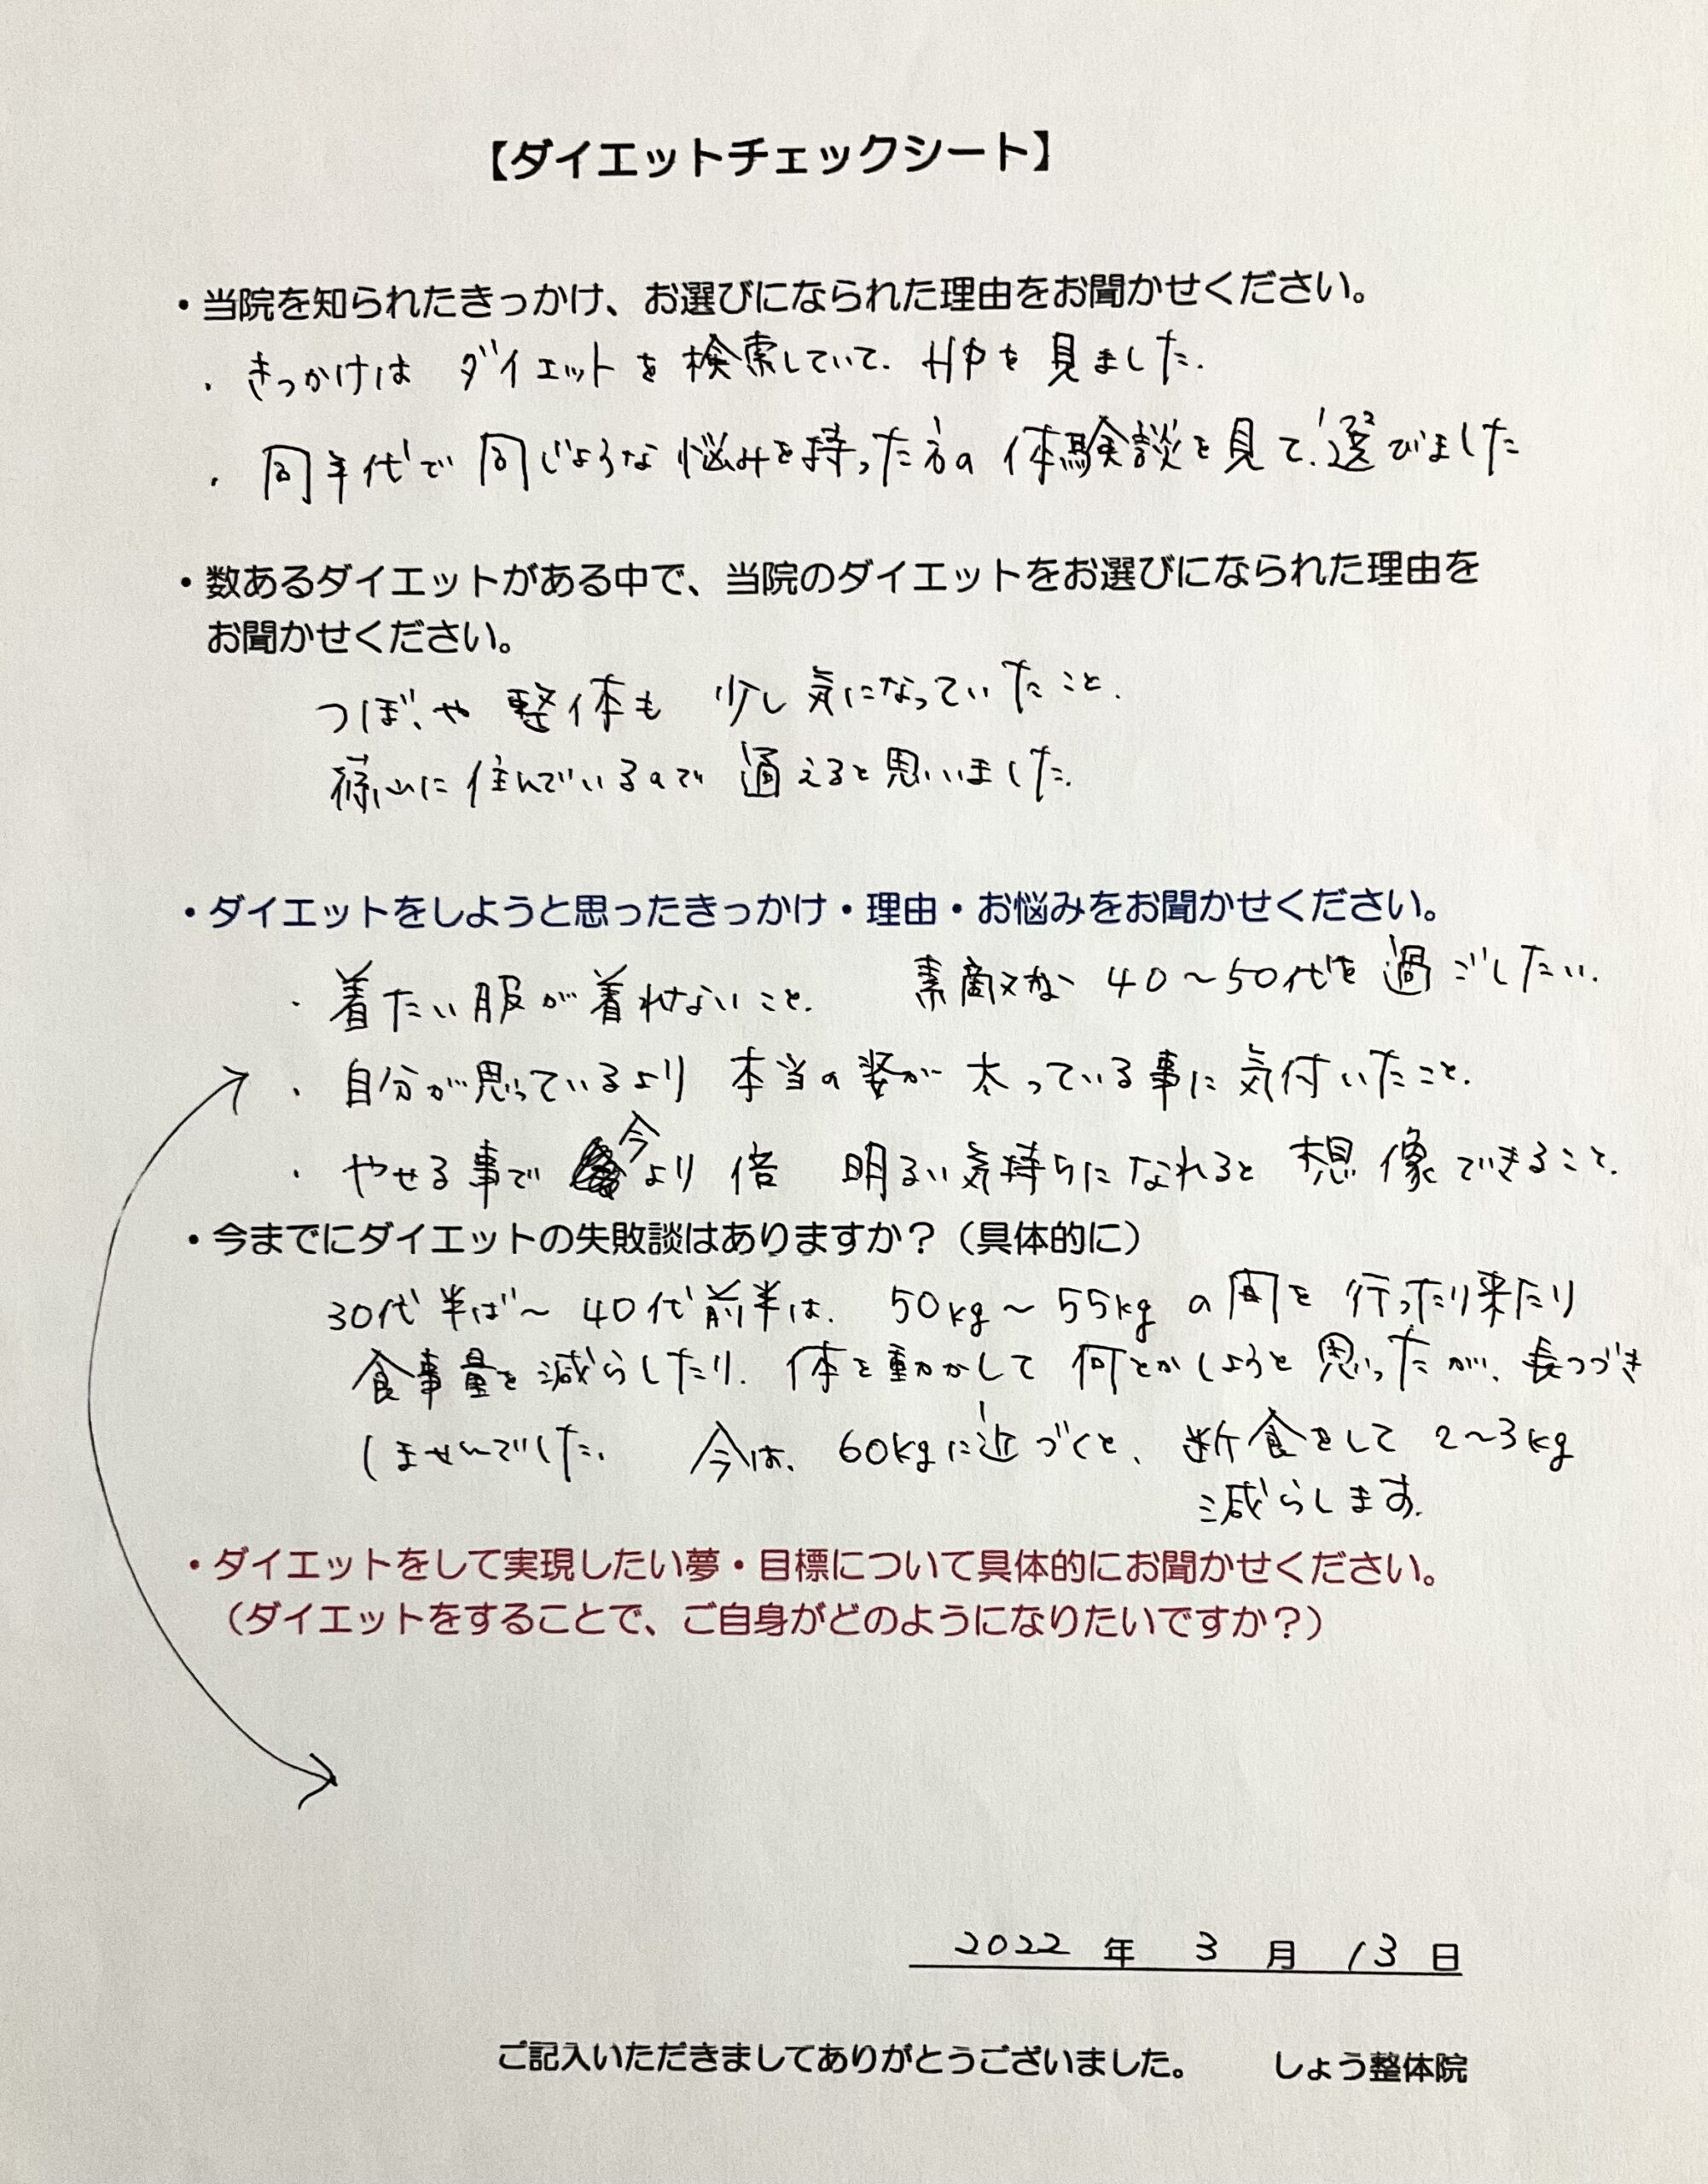 【ダイエットチェックシート】
・当院を知られたきっかけ、お選びになられた理由をお聞かせください。
・きっかけは ダイエットを検索していて、HPを見ました。
・同年代で同じような悩みを持った方の体験談を見て、選びました
・数あるダイエットがある中で、当院のダイエットをお選びになられた理由を
お聞かせください。
つぼや整体も少し気になっていたこと。
篠山に住んでいるので通えると思いました。
・ダイエットをしようと思ったきっかけ・理由・お悩みをお聞かせください。
・着たい服が着れないこと。 素敵な40～50代を過ごしたい。
・自分が思っているより本当の姿が太っている事に気付いたこと。
・やせる事で今より倍 明るい気持ちになれると想像できること。
・今までにダイエットの失敗談はありますか？（具体的に）
30代半ば～40代前半は、50kg～55kgの間を行ったり来たり
食事量を減らしたり、体を動かして何とかしようと思ったが、長つづき
しませんでした。 今は、60kgに近づくと、断食をして2～3kg
減らします。
・ダイエットをして実現したい夢・目標について具体的にお聞かせください。
（ダイエットをすることで、ご自身がどのようになりたいですか？）
2022年 3月 13日
ご記入いただきましてありがとうございました。 しょう整体院